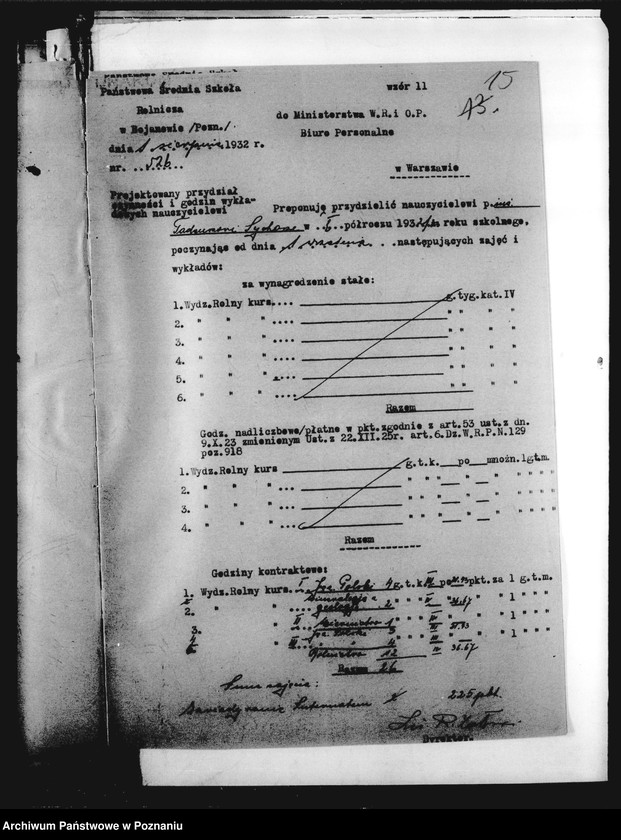 Państwowa Średnia Szkoła
wzór 11
15
Rolnicza
do Ministerstwa W.R.i O.P.
w Bojanowie /Pozn./
Biuro Personalne
dnia 1 sierpnia 1932 r.
nr. ..526..
w Warszawie
Projektowany przydział
czynności i godzin wykła-
dowych nauczycielowi
Proponuję przydzielić nauczycielowi p.
w ..I.. półroczu 193 roku szkolnego,
poczynając od dnia 1 września . ..następujących zajęć i
wykładów:
za wynagrodzenie stałe:
1.Wydz.Rolny kurs.... g.tyg.kat.IV
2. " " " .... " " " "
3. " " " .... " " " "
4. " " " .... " " " "
5. " " " .... " " " "
6. " " " .... " " " "
Razem
Godz. nadliczbowe/płatne w pkt.zgodnie z art.53 ust.z dn.
9.X.23 zmienionym Ust.z 22.XII.25r. art.6.Dz.W.R.P.N.129
poz.918
1.Wydz.Rolny kurs g.t.k. po mnożn.1gt.m.
2. " " " .... " " " " " " " "
3. " " " .... " " " " " " " "
4. " " " .... " " " " " " " "
Razem
Godziny kontraktowe:
1. Wydz.Rolny kurs. I Jęz. Polski 4 g.t.k. po pkt. za 1 g.t.m.
2. " " .... geologja 2 " " " " " 1 " " "
3. " II " " " " " 1 " " "
Jęz. Polski " " " " " 1 " " "
12 36.67
Razem 26
Inne zajęcia:
Zawiadywanie Internatem 225 pkt
Dyrektor.
Archiwum Państwowe w Poznaniu